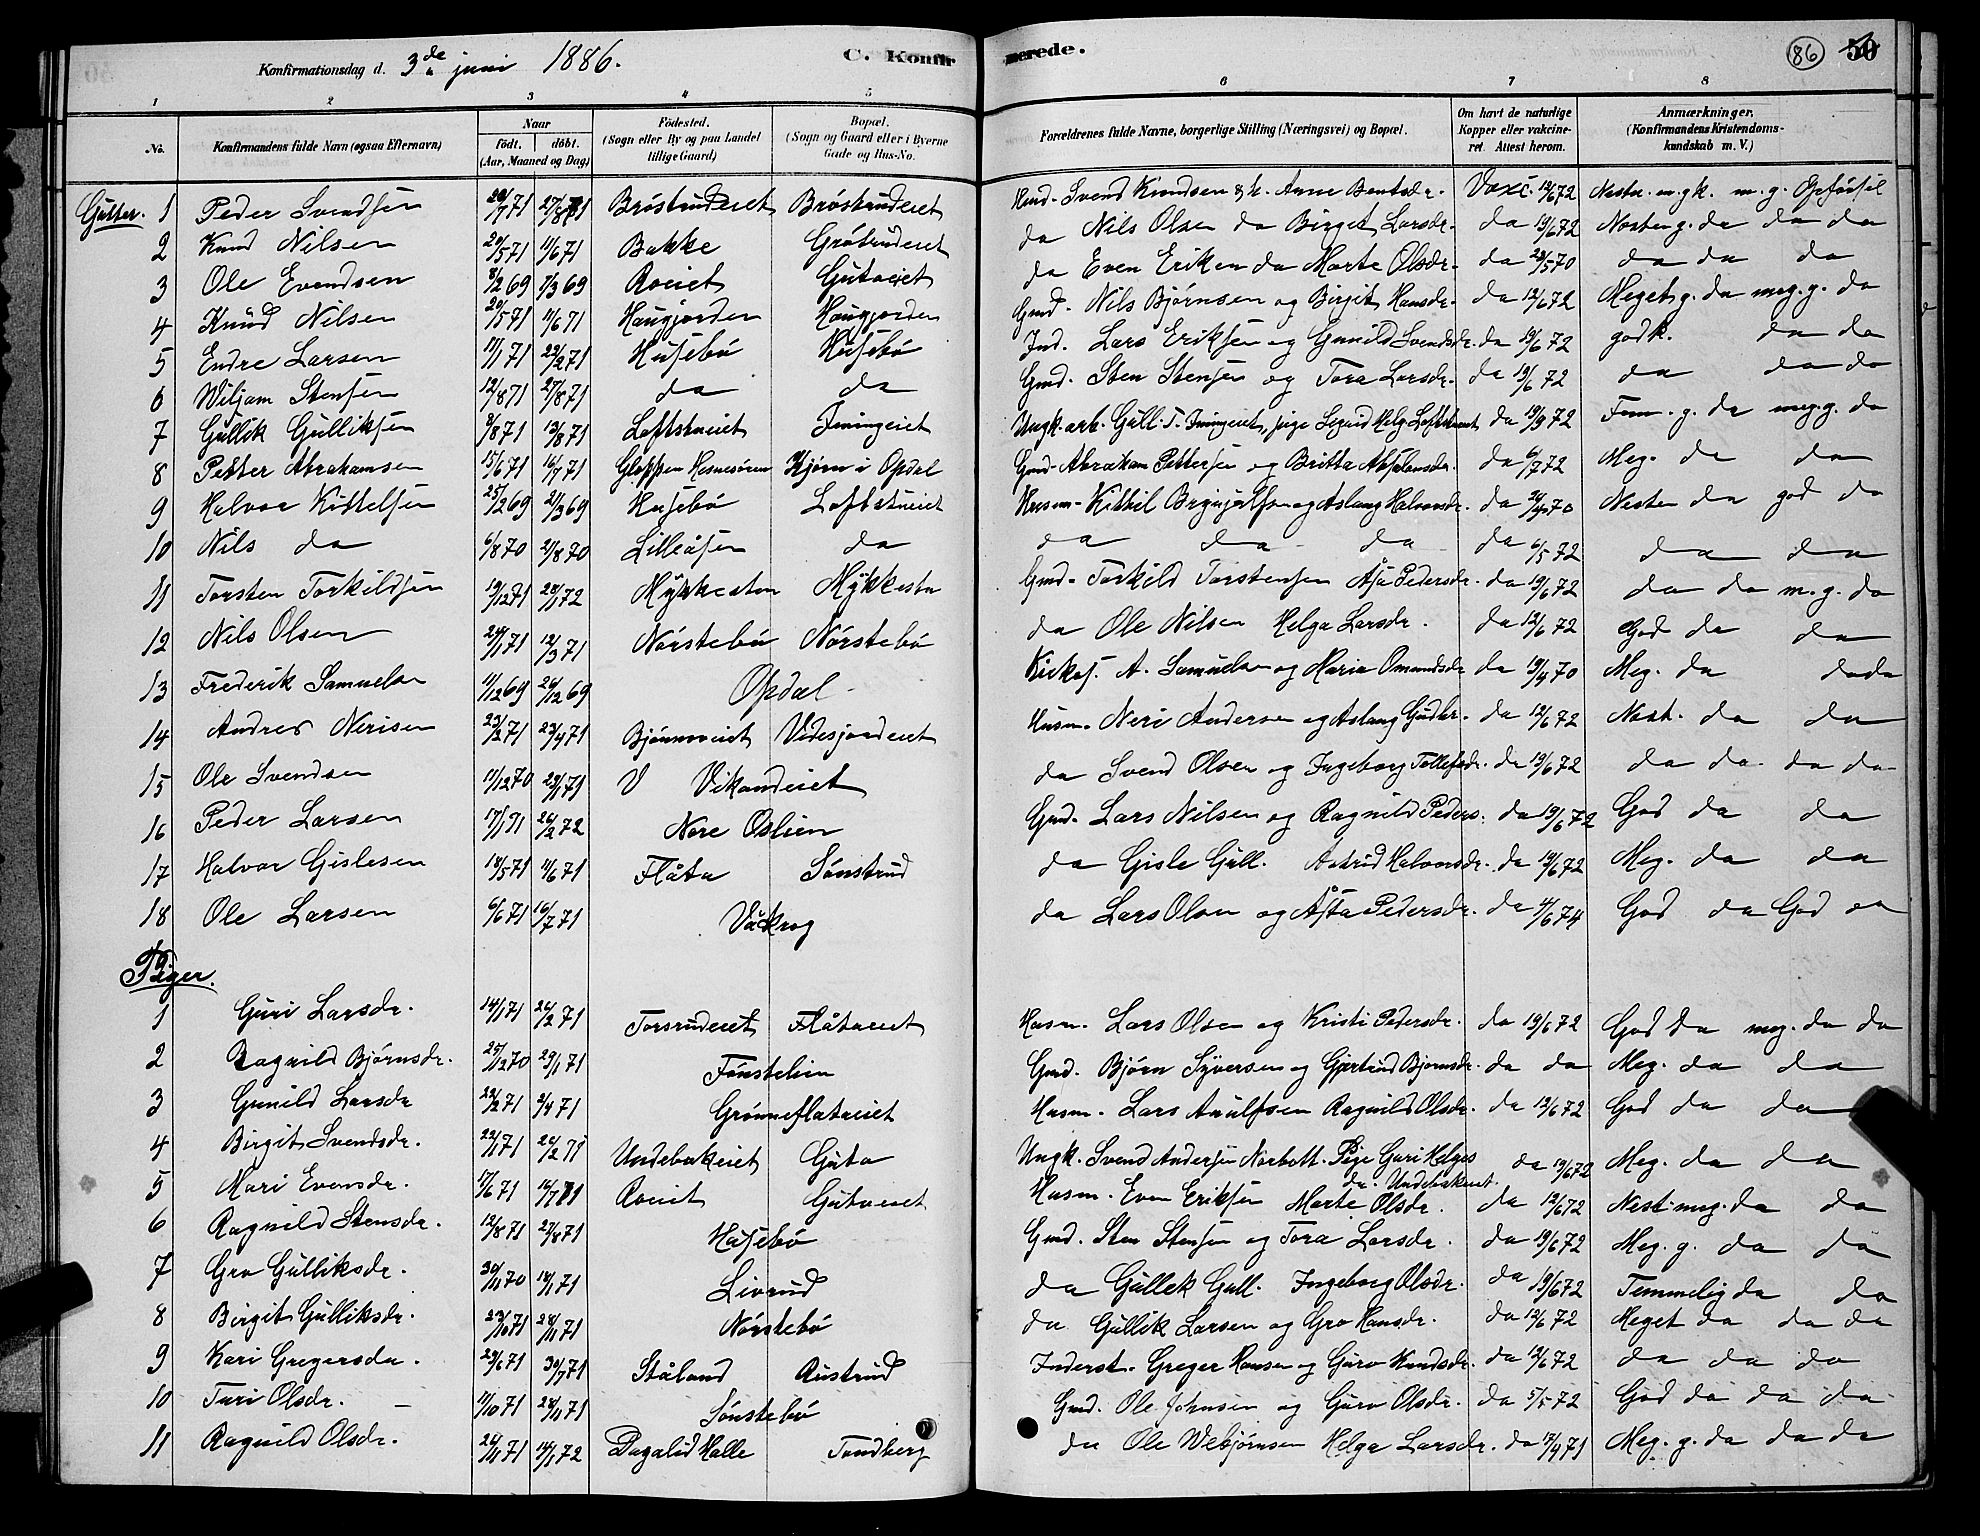 Konfirmationsdag d. 3de juni 1886. C. Konfirmerede. 86 50
1 2 3 4 5 6 7 8
No. Konfirmandens fulde Navn (ogsaa Efternavn) Naar født. døbt. (Aar, Maaned og Dag) Fødested. (Sogn eller By og paa Landet tillige Gaard) Bopæl. (Sogn og Gaard eller i Byerne Gade og Hus-No. Forældrenes fulde Navne, borgerlige Stilling (Næringsvei) og Bopæl. Om havt de naturlige Kopper eller vakcineret. Attest herom. Anmærkninger. (Konfirmandens Kristendomskundskab m. V.)
Gutter. 1 Peder Svendsen 20/7 71 27/8 71 Bröstrudeiet Bröstrudeiet Svend Knudsen & h. Anne Bentsdr. Vaxc. 12/6 72
2 Knud Nilsen 20/5 71 11/6 71 Bakke Grötrudeiet da Nils Olsen da Birget Larsdr. da 19/6 72 da da
3 Ole Evendsen 8/2 69 1/3 69 Roeiet Gutueiet da Even Eriken da Marte Olsdr. da 29/5 70 da da da
4 Knud Nilsen 20/5 71 11/6 71 Haugjorden Haugjorden Gmd. Nils Bjørnsen og Birgit Hansdr. da 12/6 72 Meget g. da meg. g. da
5 Endre Larsen 11/1 71 22/2 71 Husebö Husebö Ind. Lars Eriksen og Gunild Svendsdr. da 19/6 72 godk. da da
6 Wiljam Stensen 12/8 71 27/8 71 da da Gmd. Sten Stensen og Tora Larsdr. da 19/6 72 da da da
7 Gullik Gulliksen 9/8 71 13/8 71 Loftstueiet Imingeiet Ungk. arb. Gull. T. Imingeiet, pige Sigrid Helg. Loftstueiet da 19/9 72 Tem. g. da meg. g. da
8 Petter Abrahamsen 15/6 71 16/7 71 Gloppen Hesnesören Kjörn i Opdal Gmd. Abraham Pettersen og Britta Absalonsdr. da 6/7 72 Meg. da da
9 Halvor Kittelsen 25/2 69 21/3 69 Husebö Loftstueiet Husm. Kittil og Aslaug Halvorsdr. da 24/4 70 Nesten da god da
10 Nils da 6/8 70 21/8 70 Lilleåsen da da da da da 6/5 72 da da
11 Torsten Torkildsen 19/12 71 28/1 72 Mykkestøn Mykkestu Gmd. Torkild Torstensen Åsa Pedersdr. da 19/6 72 da da m. g. da
12 Nils Olsen 24/1 71 12/3 71 Nörstebö Nörstebö da Ole Nilsen Helga Larsdr. da 12/6 72 God da da
13 Frederik Samuelsen 11/12 69 26/12 69 Opdal Kirkes. A. Samuelsen og Maria Omundsdr da 19/4 70 Meg. da da da
14 Andres Nerisen 23/2 71 23/4 71 Bjönnoeiet Videsjordeiet Husm. Neri Andersen og Aslaug Gudbr. da 12/6 72 Nest. da da
15 Ole Svendsen 11/12 70 29/1 71 V Vikandeiet da Svend Olsen og Ingeborg Tollefsdr. da 19/6 72 da da da da
16 Peder Larsen 17/1 71 26/2 72 Nore Oslien Gmd. Lars Nilsen og Ragnild Peders. da 19/6 72 God da da
17 Halvor Gislesen 18/5 71 11/6 71 Flåta Sönstrud da Gisle Gull. Astrid Halvorsdr. da 19/6 72 Meg. da da
18 Ole Larsen 6/6 71 16/7 71 Våckrog da Lars Olsen og Åsta Pedersdr. da 4/6 74 God da God da
Piger.
1 Guri Larsdr. 14/1 71 26/2 71 Torsrudeiet Flåtaeiet Husm. Lars Olsen og Kristi Pedersdr. da 19/6 72 God da meg. da da
2 Ragnild Bjørnsdr. 25/12 70 29/1 71 Tönstelien Gmd. Bjørn Syversen og Gjertrud Bjornsdr. da da Meg. da da
3 Gunild Larsdr 22/2 71 2/4 71 Grönneflataeiet Husm. Lars Anulfsen Ragnild Olsdr. da 12/6 72 God da da
4 Birgit Svendsdr. 22/1 71 26/2 71 Undebakeiet Guta Ungk. Svend Andersen Norbott. Pige Guri Helges da 19/6 72 Meg. da da
da. Undebakeiet.
5 Mari Evensdr. 17/6 71 16/7 71 Roeiet Gutueiet Husm. Even Eriksen Marte Olsdr. da 12/6 72 Nest. meg. da da
6 Ragnild Stensdr. 12/8 71 27/8 71 Husebö Gmd. Sten Stensen og Tora Larsdr. da 19/6 72 Meg. g. da da
7 Gro Gulliksdr. 30/11 70 18/1 71 Livrud da Gullek Gull. Ingeborg Olsdr. da 19/6 72 Temmelig da da
8 Birgit Gulliksdr. 23/10 71 28/11 71 Nörstebö da Gullik Larsen og Gro Hansdr. da 12/6 72 Meget da da da
9 Kari Gregersdr. 29/6 71 30/7 71 Ståland Rustrud Inderst. Greger Hansen og Guro Knudsdr. da 12/6 72 da da da
10 Turi Olsdr. 11/10 71 28/11 71 Sönstebö Gmd. Ole Johnsen og Guro Olsdr. da 5/5 72 God da da da
11 Ragnild Olsdr. 26/11 71 14/1 72 Dagalid Halle Tandberg da Ole Webjørnsen Helga Larsdr. da 17/9 71 Meg. g. da da da